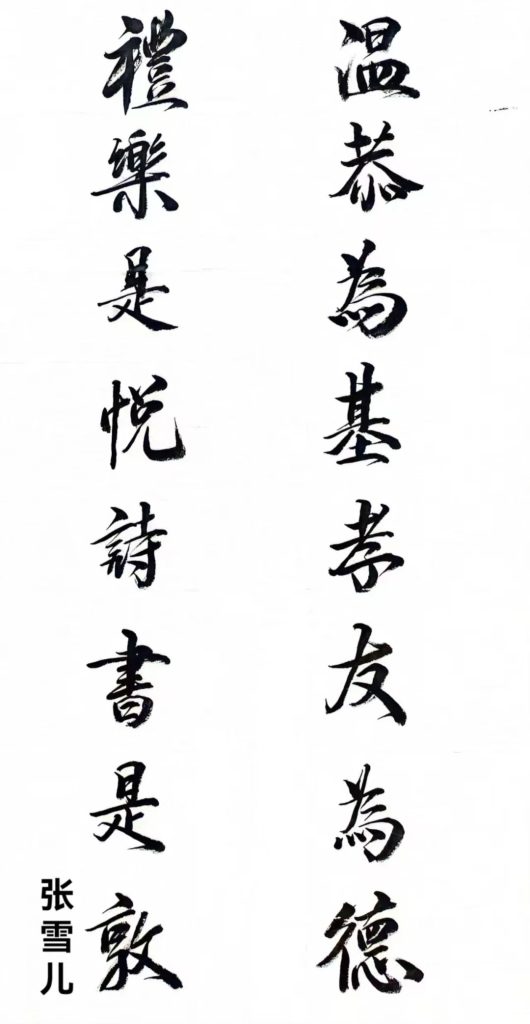 温恭為基孝友為德
禮樂是悦詩書是敦
张雪儿